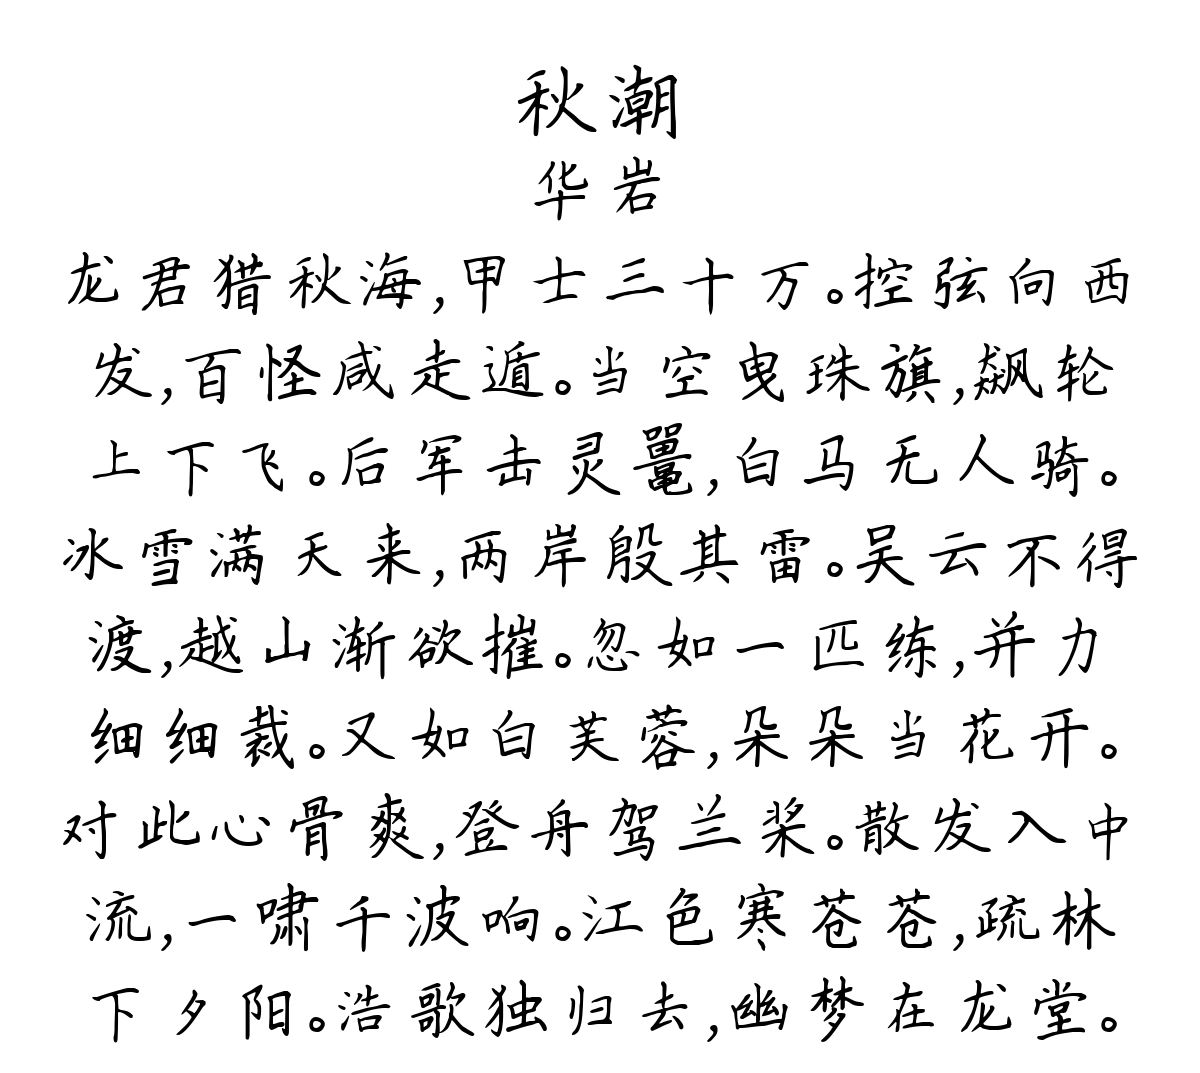 秋潮
华岩
龙君猎秋海,甲士三十万。控弦向西
发,百怪咸走遁。当空曳珠旗,飙轮
上下飞。后军击灵鼍,白马无人骑。
冰雪满天来,两岸殷其雷。吴云不得
渡,越山渐欲摧。忽如一匹练,并力
细细裁。又如白芙蓉,朵朵当花开。
对此心骨爽,登舟驾兰桨。散发入中
流,一啸千波响。江色寒苍苍,疏林
下夕阳。浩歌独归去,幽梦在龙堂。